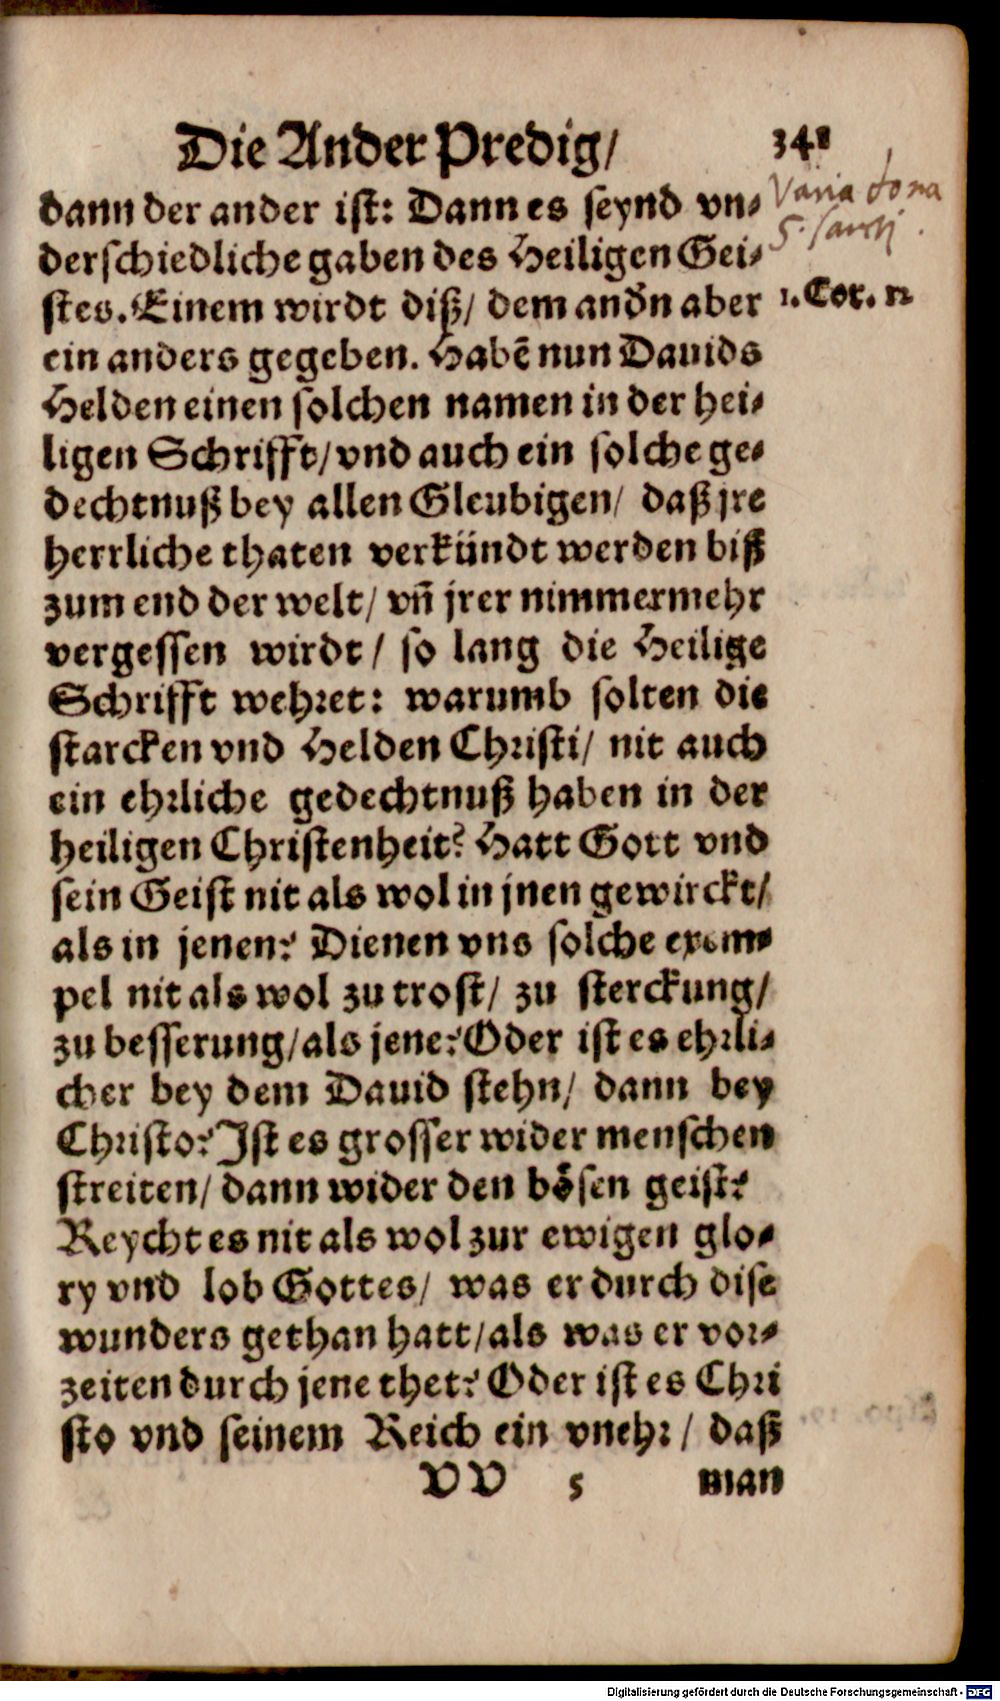 Die Ander Predig/ 341
dann der ander ist: Dann es seynd vn-
Varia dona
derschiedliche gaben des Heiligen Gei-
S. Sancti.
stes. Einem wirdt diß/ dem andn̄ aber
1. Cor. 12
ein anders gegeben. Habē nun Dauids
Helden einen solchen namen in der hei-
ligen Schrifft/ vnd auch ein solche ge-
dechtnuß bey allen Gleubigen/ daß jre
herrliche thaten verkündt werden biß
zum end der welt/ vn̄ jrer nimmermehr
vergessen wirdt/ so lang die Heilige
Schrifft wehret: warumb solten die
starcken vnd Helden Christi/ nit auch
ein ehrliche gedechtnuß haben in der
heiligen Christenheit? Hatt Gott vnd
sein Geist nit als wol in jnen gewirckt/
als in jenen? Dienen vns solche exem-
pel nit als wol zu trost/ zu sterckung/
zu besserung/ als jene? Oder ist es ehrli-
cher bey dem Dauid stehn/ dann bey
Christo? Ist es grosser wider menschen
streiten/ dann wider den bösen geist?
Reycht es nit als wol zur ewigen glo-
ry vnd lob Gottes/ was er durch dise
wunders gethan hatt/ als was er vor-
zeiten durch jene thet? Oder ist es Chri
sto vnd seinem Reich ein vnehr/ daß
VV 5 man
Digitalisierung gefördert durch die Deutsche Forschungsgemeinschaft - DFG